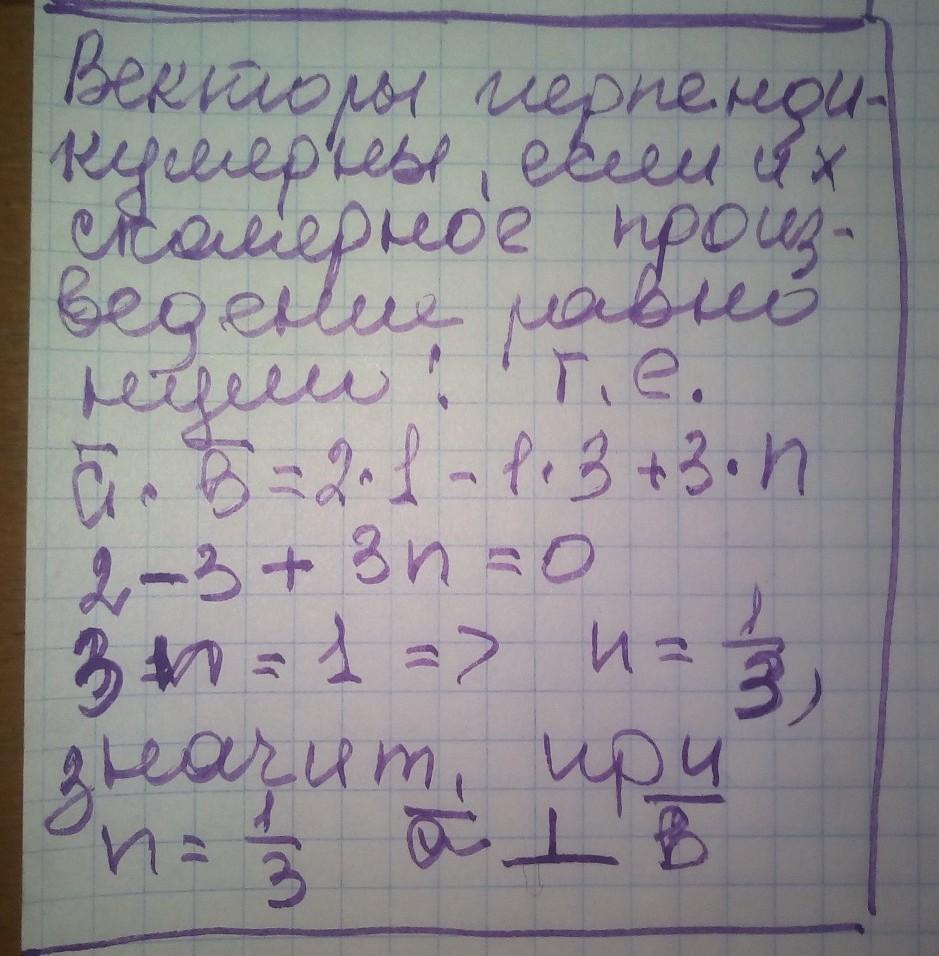 Векторы перпенди-
кулярны, если их
скалярное произ-
ведение равно
нулю: т.е.
a̅ · b̅ = 2·1 - 1·3 + 3·n
2 - 3 + 3n = 0
3n = 1 => n = 1/3,
значит, при
n = 1/3 a̅ ⊥ b̅